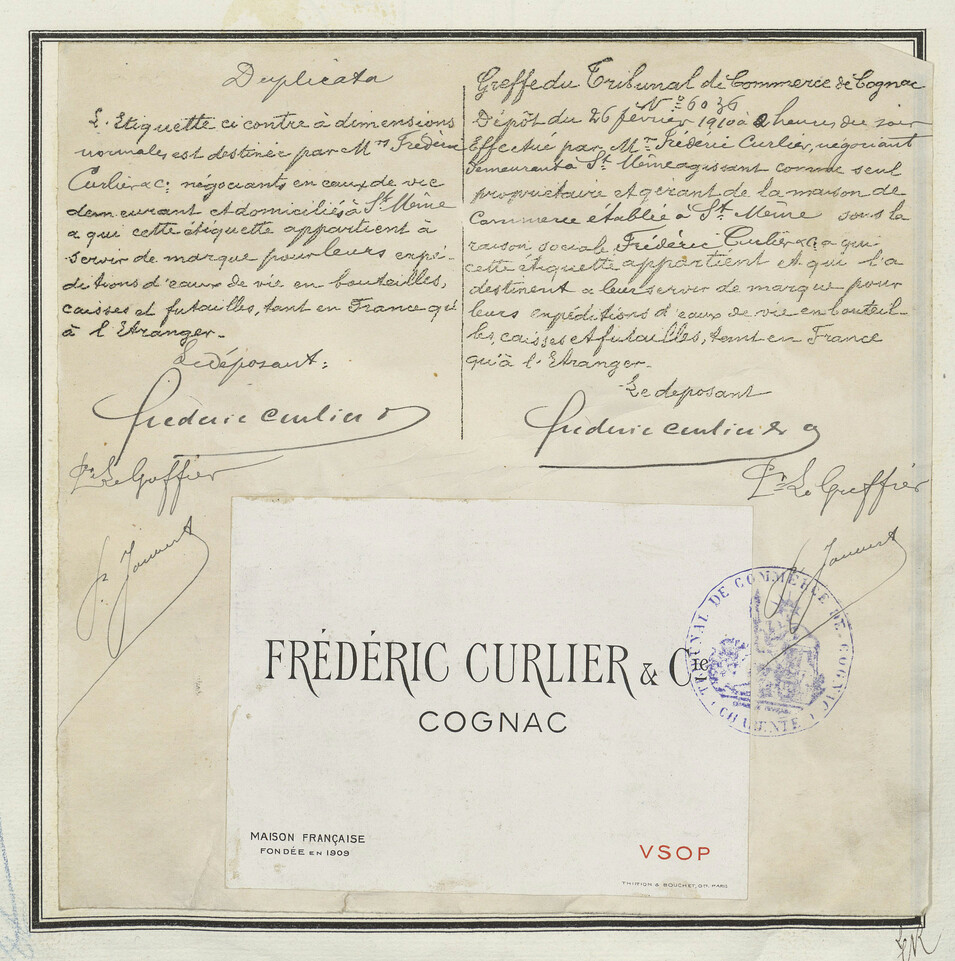 Duplicata
L'Etiquette ci contre à dimensions
normales est destinée par Mrs Frédéric
Curlier & Cie négociants en eaux de vie
demeurant et domiciliés à St Même
a qui cette étiquette appartient à
servir de marque pour leurs expé-
ditions d'eaux de vie en bouteilles,
caisses et futailles, tant en France qu'
à l'Etranger.
Le déposant:
Frédéric Curlier
Pr Le Greffier
Greffe du Tribunal de Commerce de Cognac
N° 6036
Dépôt du 26 février 1910 à 2 heures du soir
Effectué par Mr Frédéric Curlier, négociant
demeurant à St Même agissant comme seul
propriétaire et gérant de la maison de
Commerce établie à St Même sous la
raison sociale Frédéric Curlier & Cie a qui
cette étiquette appartient et qui l'a
destinent a leur servir de marque pour
leurs expéditions d'eaux de vie en bouteil-
les, caisses et futailles, tant en France
qu'à l'Etranger.
Le deposant
Frédéric Curlier & Cie
Pr Le Greffier
FRÉDÉRIC CURLIER & CIE
COGNAC
MAISON FRANÇAISE
FONDÉE EN 1909
VSOP
THIRION & BOUCHET, PARIS
TRIBUNAL DE COMMERCE DE COGNAC
CHARENTE